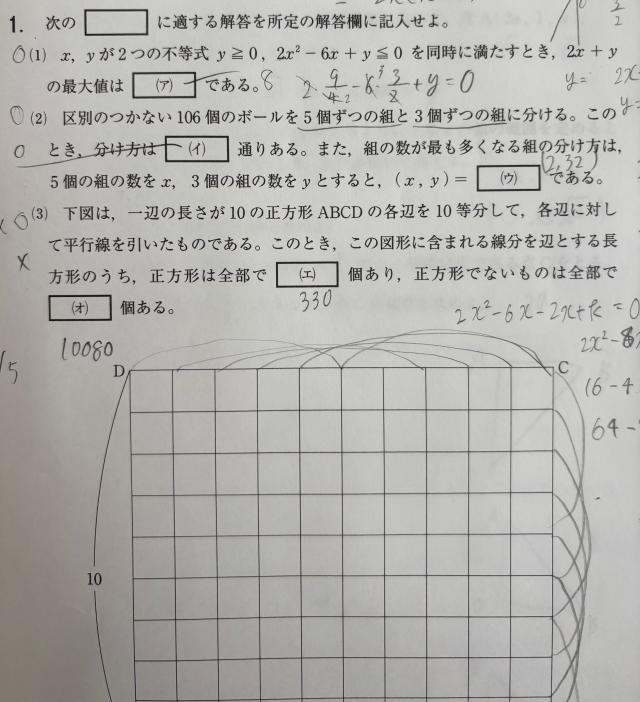 1. 次の に適する解答を所定の解答欄に記入せよ。
(1) x, y が2つの不等式 y≧0, 2x²−6x+y≦0 を同時に満たすとき, 2x+y
の最大値は (ア) である。8
(2) 区別のつかない 106 個のボールを 5 個ずつの組と 3 個ずつの組に分ける。この
とき, 分け方は (イ) 通りある。また, 組の数が最も多くなる組の分け方は,
(2, 32)
5 個の組の数を x, 3 個の組の数を y とすると, (x, y)= (ウ) である。
(3) 下図は, 一辺の長さが 10 の正方形 ABCD の各辺を 10 等分して, 各辺に対し
て平行線を引いたものである。このとき, この図形に含まれる線分を辺とする長
方形のうち, 正方形は全部で (エ) 個あり, 正方形でないものは全部で
330
(オ) 個ある。
2x²−6x−2x+k=0
10080
D C
10